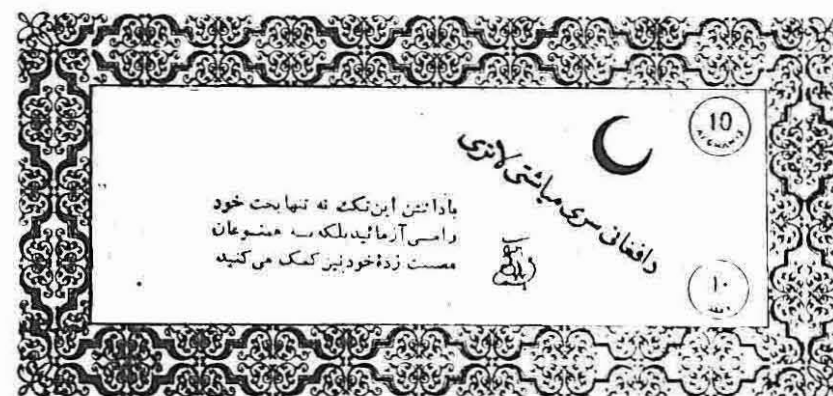 10
AFGHANIS
دافغانی سری میاشتی لاتری
باداشتن این تکت نه تنها بخت خود
را می آزمائید بلکه به همنوعان
مصیبت زدهٔ خود نیز کمک می کنید
۱۰